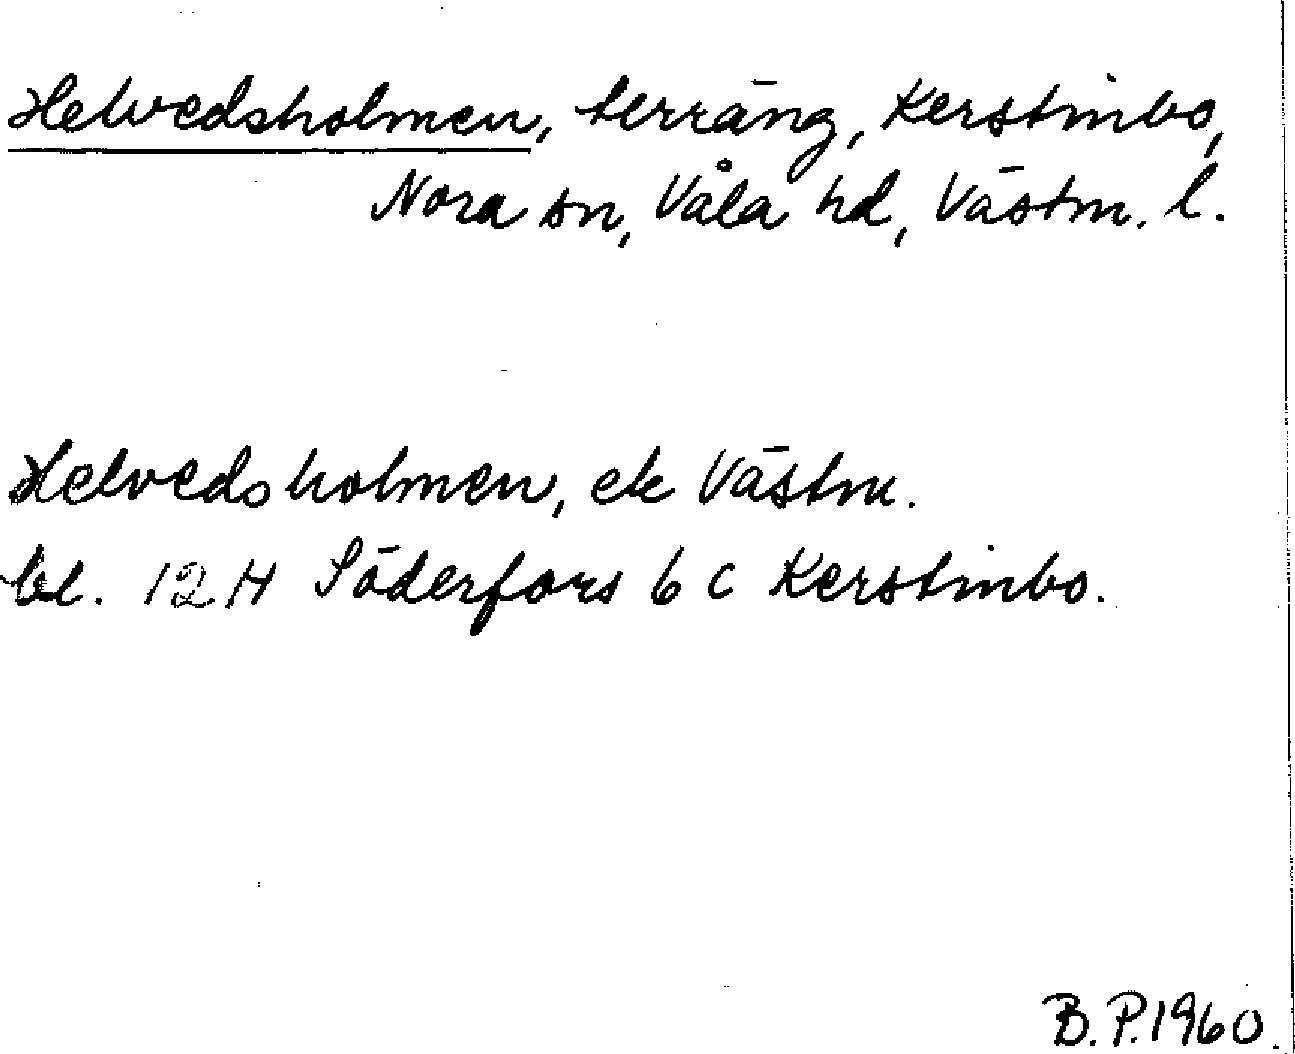 Helvedsholmen, terräng, Kerstinbo,
Nora sn, Våla hd, Västm. l.
Helvedsholmen, ek Västm.
bl. 12H Söderfors 6 c Kerstinbo.
B.P.1960.